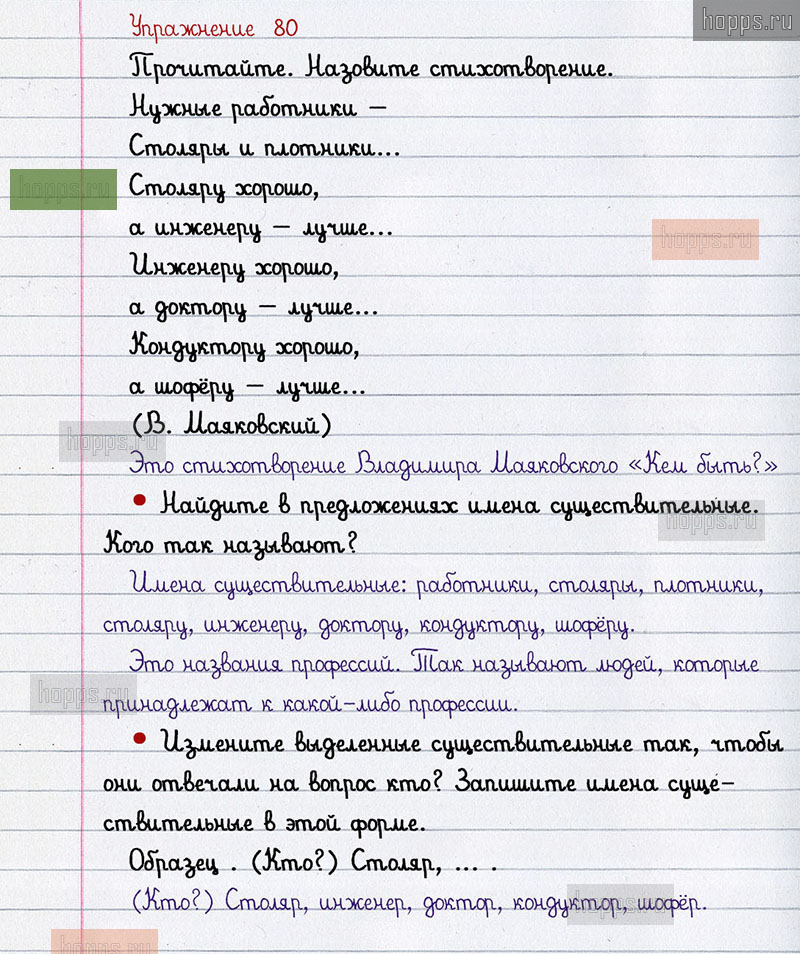 hopps.ru
Упражнение 80
Прочитайте. Назовите стихотворение.
Нужные работники –
Столяры и плотники...
hopps.ru
Столяру хорошо,
а инженеру – лучше...
hopps.ru
Инженеру хорошо,
а доктору – лучше...
Кондуктору хорошо,
а шофёру – лучше...
(В. Маяковский)
hopps.ru
Это стихотворение Владимира Маяковского «Кем быть?»
• Найдите в предложениях имена существительные.
hopps.ru
Кого так называют?
Имена существительные: работники, столяры, плотники,
столяру, инженеру, доктору, кондуктору, шофёру.
Это названия профессий. Так называют людей, которые
hopps.ru
принадлежат к какой-либо профессии.
• Измените выделенные существительные так, чтобы
они отвечали на вопрос кто? Запишите имена суще-
ствительные в этой форме.
Образец . (Кто?) Столяр, ... .
(Кто?) Столяр, инженер, доктор, кондуктор, шофёр.
hopps.ru
hopps.ru